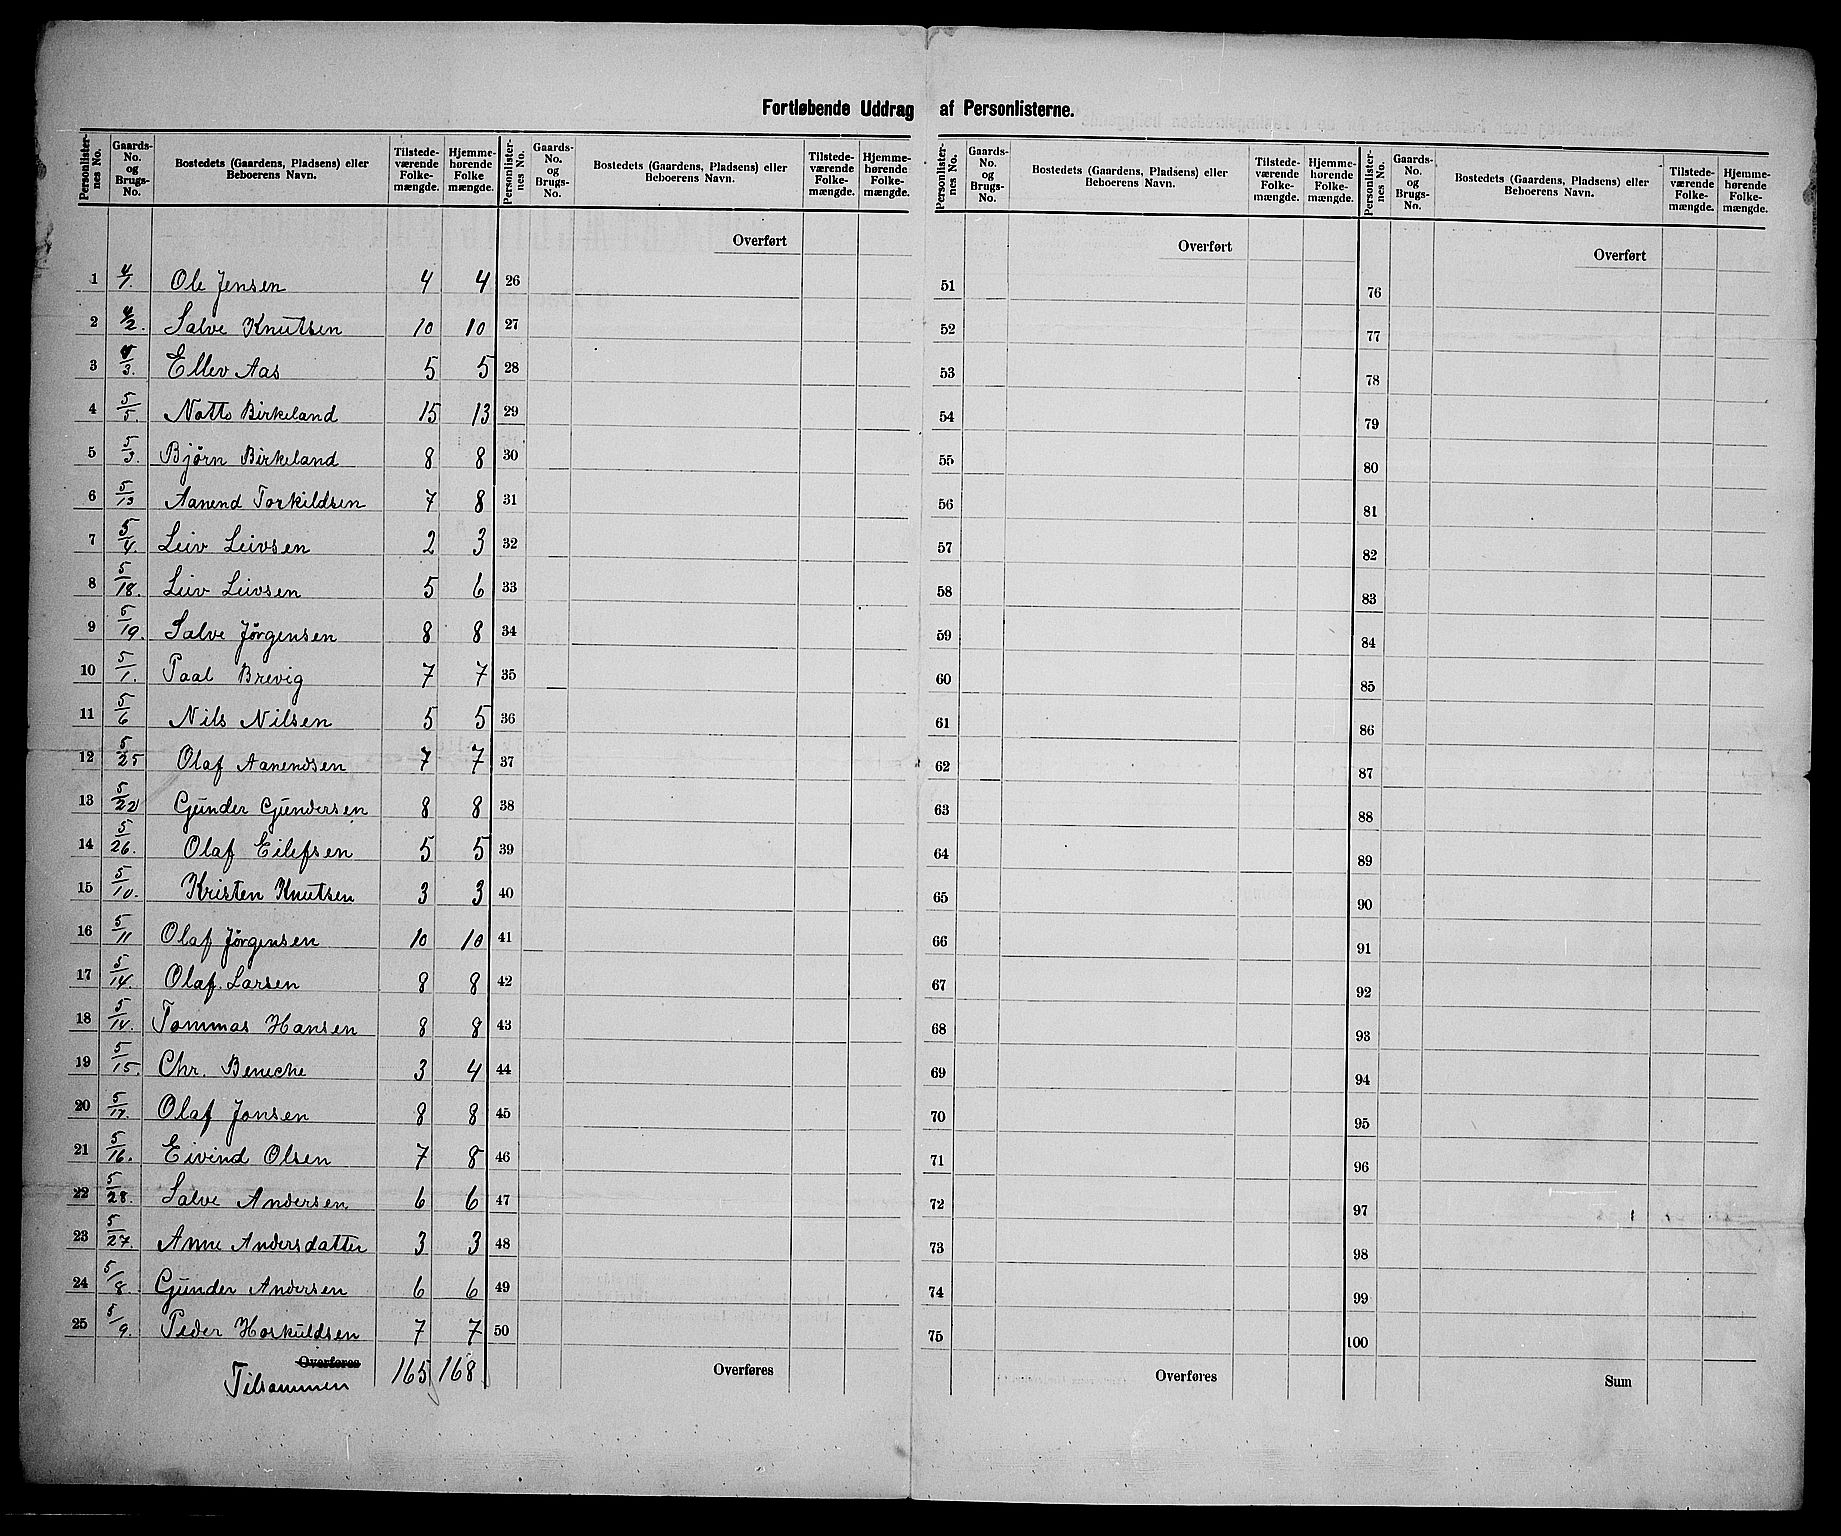 Fortløbende Uddrag af Personlisternе.
Personlister-nes No. | Gaards-No. og Brugs-No. | Bostedets (Gaardens, Pladsens) eller Beboerens Navn. | Tilstede-værende Folke-mængde. | Hjemme-hørende Folke mængde.
1 4/1. Ole Jensen 4 4
2 4/2. Salve Knutsen 10 10
3 4/3. Ellev Aas 5 5
4 5/5. Notto Birkeland 15 13
5 5/3. Bjørn Birkeland 8 8
6 5/13 Aanend Torkildsen 7 8
7 5/4. Leiv Leivsen 2 3
8 5/18. Leiv Leivsen 5 6
9 5/19. Salve Jørgensen 8 8
10 5/1. Paal Brevig 7 7
11 5/6 Nils Nilsen 5 5
12 5/25 Olaf Aanendsen 7 7
13 5/22 Gunder Gundersen 8 8
14 5/26. Olaf Eilefsen 5 5
15 5/10. Kristen Knutsen 3 3
16 5/11 Olaf Jørgensen 10 10
17 5/14. Olaf Larsen 8 8
18 5/14. Tommas Hansen 8 8
19 5/15. Chr. Beneche 3 4
20 5/17. Olaf Jonsen 8 8
21 5/16. Eivind Olsen 7 8
22 5/28. Salve Andersen 6 6
23 5/27. Anne Andersdatter 3 3
24 5/8. Gunder Andersen 6 6
25 5/9. Peder Horkuldsen 7 7
Overføres 165 168
Tilsammen
Personlister-nes No. | Gaards-No. og Brugs-No. | Bostedets (Gaardens, Pladsens) eller Beboerens Navn. | Tilstede-værende Folke-mængde. | Hjemme-hørende Folke-mængde.
Overført
26
27
28
29
30
31
32
33
34
35
36
37
38
39
40
41
42
43
44
45
46
47
48
49
50
Overføres
Personlister-nes No. | Gaards-No. og Brugs-No. | Bostedets (Gaardens, Pladsens) eller Beboerens Navn. | Tilstede-værende Folke-mængde. | Hjemme-hørende Folke-mængde.
Overført
51
52
53
54
55
56
57
58
59
60
61
62
63
64
65
66
67
68
69
70
71
72
73
74
75
Overføres
Personlister-nes No. | Gaards-No. og Brugs-No. | Bostedets (Gaardens, Pladsens) eller Beboerens Navn. | Tilstede-værende Folke-mængde. | Hjemme-hørende Folke-mængde.
Overført
76
77
78
79
80
81
82
83
84
85
86
87
88
89
90
91
92
93
94
95
96
97
98
99
100
Sum